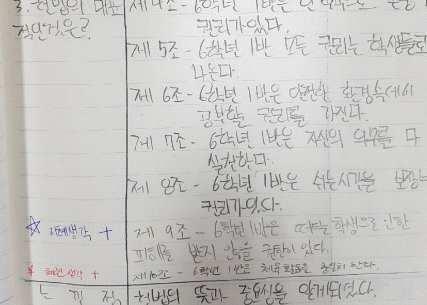 3. 헌법의 대표
적인것은?
제 4조 - 6학년 1반은
권리가있다.
제 5조 - 6학년 1반 모든 권리는 학생들로
나온다.
제 6조 - 6학년 1반은 안전한 환경속에서
공부할 권리를 가진다.
제 7조 - 6학년 1반은 자신의 의무를 다
실천한다.
제 8조 - 6학년 1반은 쉬는시간을 보장
권리가있다.
☆ 생각 + 제 9조 - 6학년 1반은 떠드는 학생으로 인한
피해를 받지 않을 권리가 있다.
생각 + 제10조 - 6학년 1반은
느낀점 헌법의 뜻과 중요성을 알게되었다.